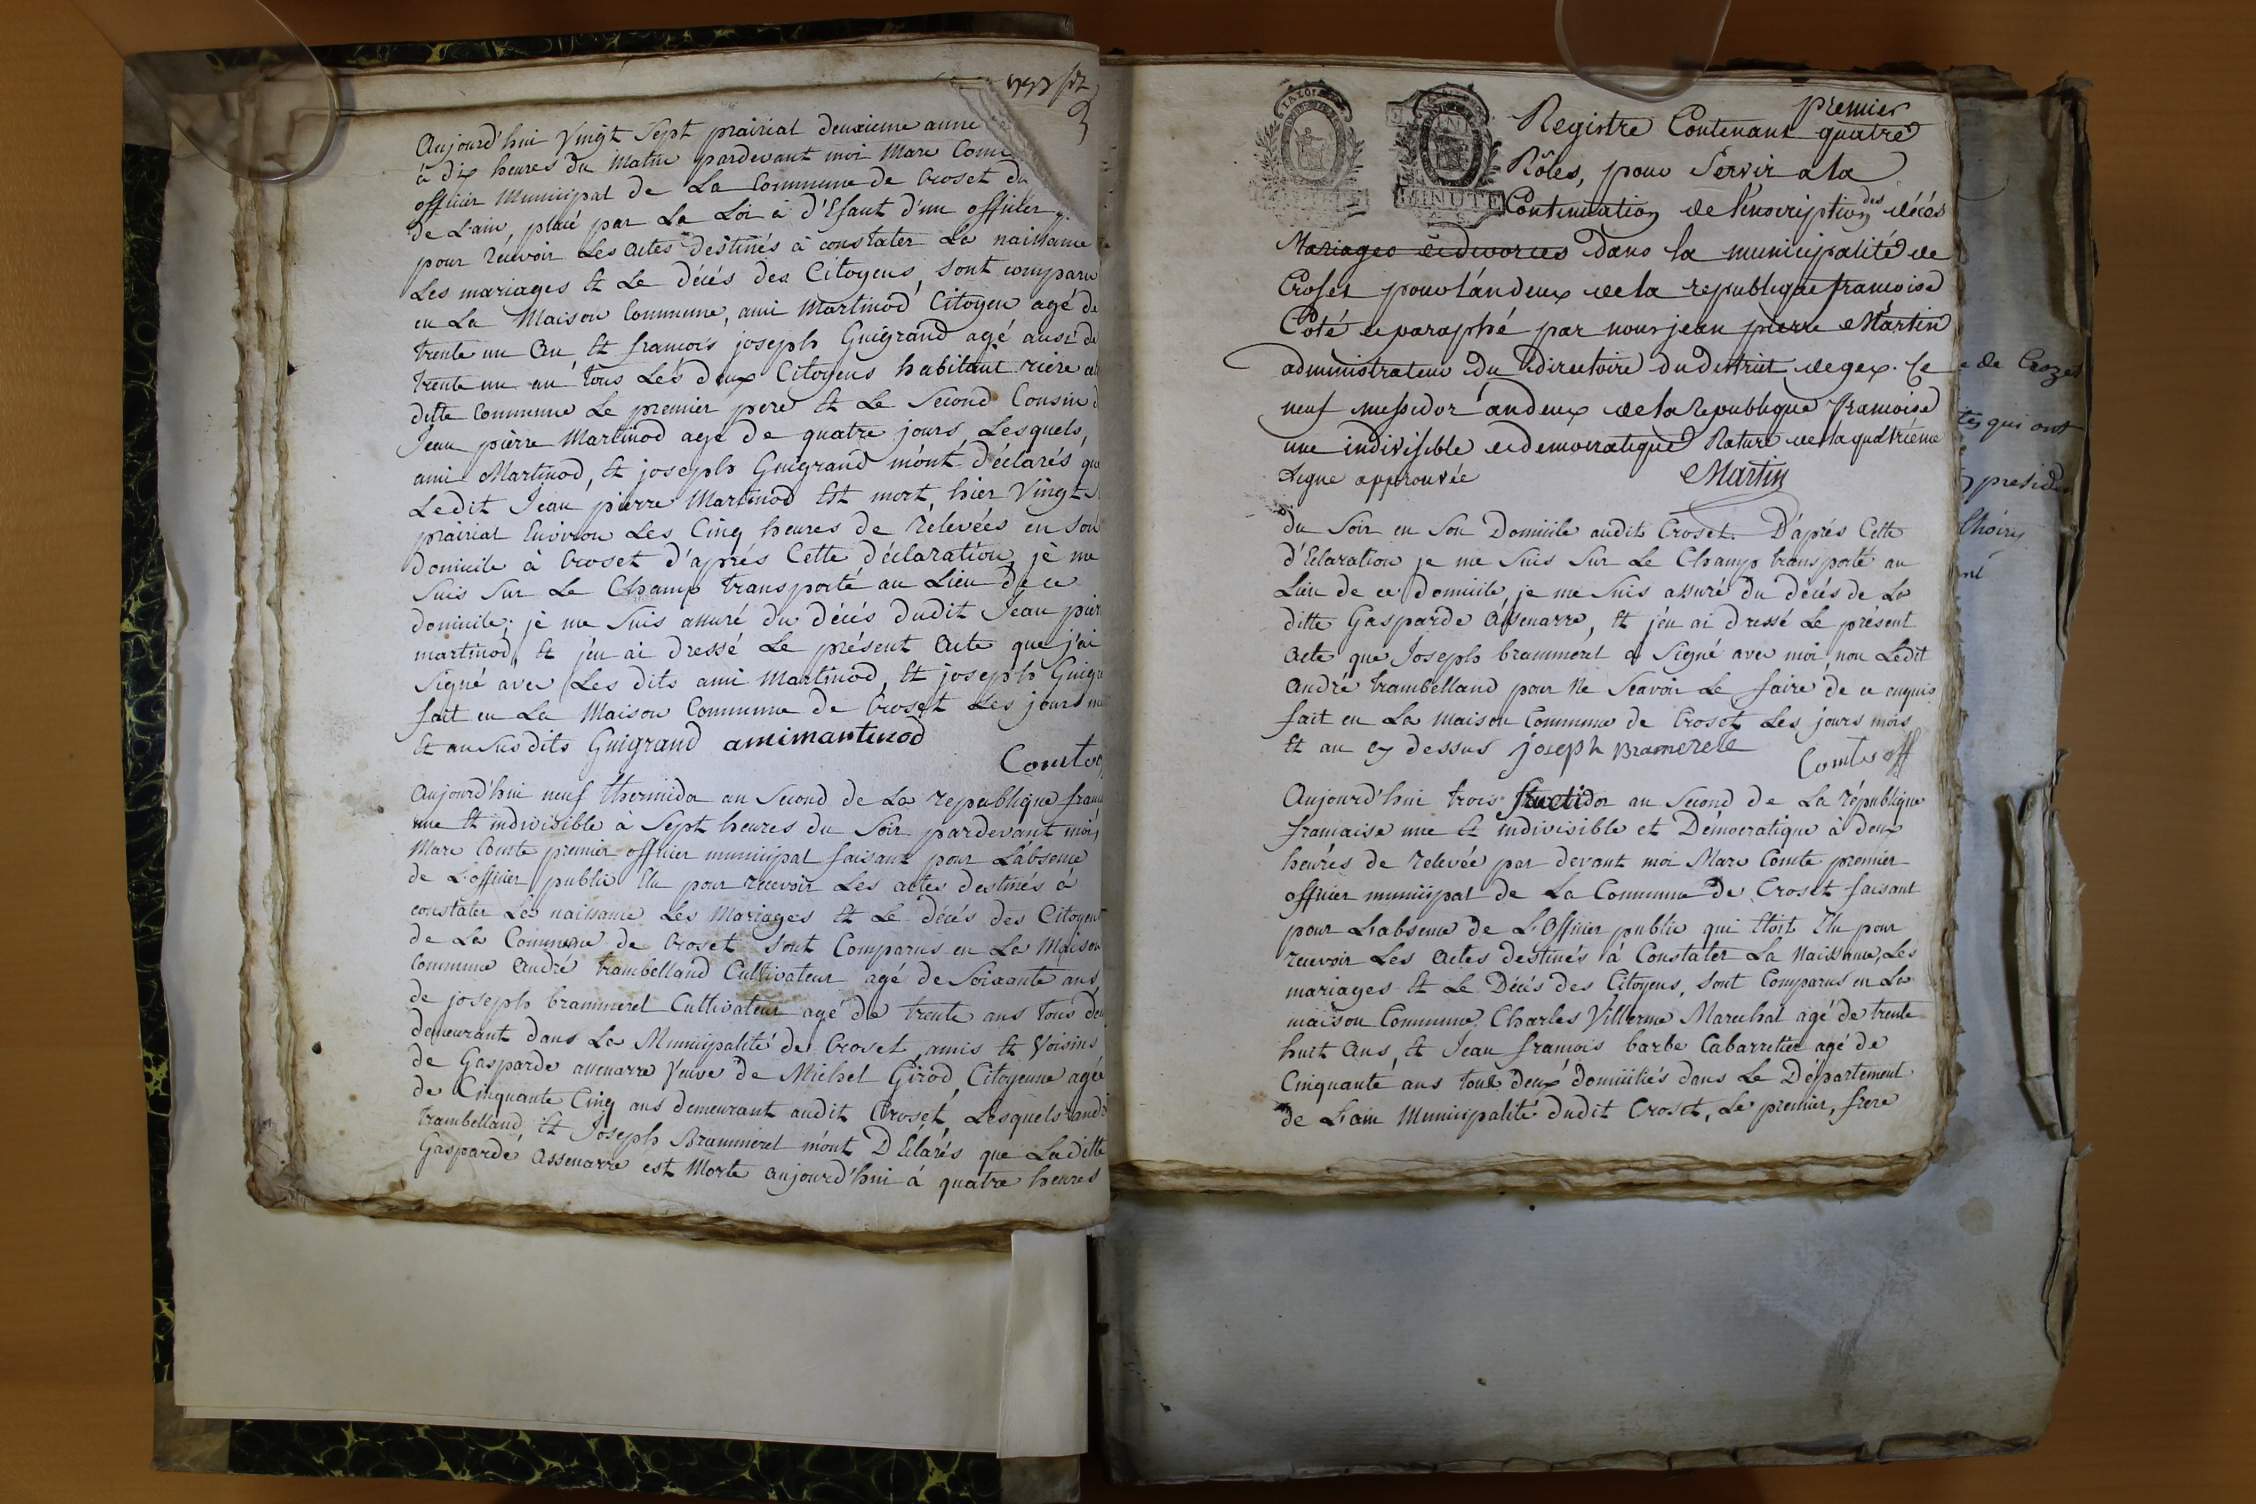 Aujourd'hui Vingt Sept prairial deuxieme anne
à dix heures du Matin pardevant moi Marc Comte
officier Municipal de La Commune de Croset du
de L'ain, placé par La Loi à d'Efaut d'un officier
pour récevoir Les actes destinés à constater La naissance
Les mariages et Le décés des Citoyens, sont comparu
en La Maison Commune, ami Martinod Citoyen agé de
trente un an et francois joseph Guigrand agé aussi de
trente un an tous Les deux Citoyens habitant riere
ditte Commune Le premier pere et Le Second Cousin
Jean pierre Martinod agé de quatre jours Lesquels,
ami Martinod, et joseph Guigrand m'ont d'éclarés que
Ledit Jean pierre Martinod Est mort, hier Vingt
prairial Environ Les Cinq heures de rélevées en son
domicile à Croset d'aprés Cette déclaration, jè me
Suis Sur Le Champ transporté au Lieu de ce
domicile; jè me suis assuré du décés dudit Jean pier
martinod, et j'en ai dressé Le présent Acte que j'ai
Signé avec Les dits ami Martinod, et joseph Guigr
fait en La Maison Commune de Croset Les jours
Et an Sus dits Guigrand amimartinod
Comte
Aujourd'hui neuf thermidor an Second de La republique fran
une et indivisible à Sept heures du Soir pardevant moi
Marc Comte premier officier municipal faisant pour L'absence
de L'officier public Elu pour recevoir Les actes destinés à
constater La naissance Les Mariages et Le décés des Citoyens
de La Commune de Croset sont Comparus en La Maison
Commune André trambelland Cultivateur agé de Soixante ans
de joseph brammerel Cultivateur agé de trente ans tous deu
demeurant dans La Municipalité de Croset, amis et Voisins
de Gasparde assenarre Veuve de Michel Girod, Citoyenne agée
de Cinquante Cinq ans demeurant audit Croset, Lesquels andr
trambelland et Joseph Brammerel m'ont D'Eclarés que Laditte
Gasparde assenarre est Morte aujourd'hui à quatre heures
premier
Registre Contenant quatre
Rôles, pour Servir a la
MINUTE
Continuation de l'inscription des décés
Mariages et divorces dans la municipalité de
Croset pour l'an deux de la republique francoise
Coté et paraphé par nous jean pierre Martin
administrateur du directoire du district de gex. Ce
neuf messidor an deux de la Republique francoise
une indivisible et democratique Rature de la quatrième
Ligne approuvée Martin
du Soir en Son Domicile audit Croset. D'aprés Cette
d'Eclaration je me Suis Sur Le Champ transporté au
Lieu de ce Domicile, je me Suis assuré du décés de La
ditte Gasparde Assenarre, et j'en ai dressé Le présent
Acte que Joseph brammerel a Signé avec moi, non Ledit
André trambelland pour Ne Scavoir Le faire de ce enquis
fait en La maison Commune de Croset Les jours mois
et an cy dessus joseph Bramerele
Comte off
Aujourd'hui trois fructidor an Second de La république
francaise une et indivisible et Démocratique à deux
heures de relevée par devant moi Marc Comte premier
officier municipal de La Commune de Croset faisant
pour L'absence de L'Officier public qui Etoit Elu pour
recevoir Les actes destinés à Constater La Naissance, Les
mariages et Le Décés des Citoyens, Sont Comparus en La
maison Commune, Charles Villerme Marechal agé de trente
huit Ans, et Jean francois barbe Cabarretier agé de
Cinquante ans tous deux domiciliés dans Le Département
de L'ain Municipalité dudit Croset, Le premier, frere
e de Crozet
tes qui ont
presid
Choiry